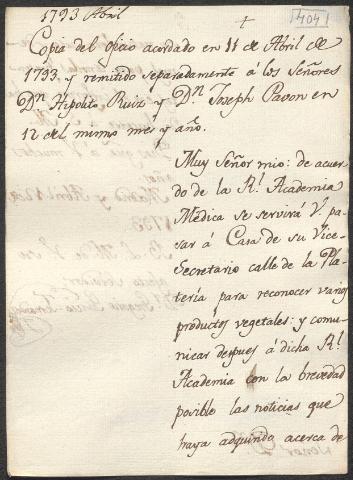 1793 Abril
404
Copia del oficio acordado en 11 de Abril de
1793, y remitido separadamente á los Señores
Dn Hipolito Ruiz y Dn Joseph Pavon en
12 del mismo mes y año.
Muy Señor mio: de acuer
do de la Rl. Academia
Medica se servirá V. pa
sar á Casa de su Vice-
Secretario calle de la Pla
tería para reconocer varios
productos vegetales: y comu
nicar despues á dicha Rl.
Academia con la brevedad
posible las noticias que
haya adquirido acerca de